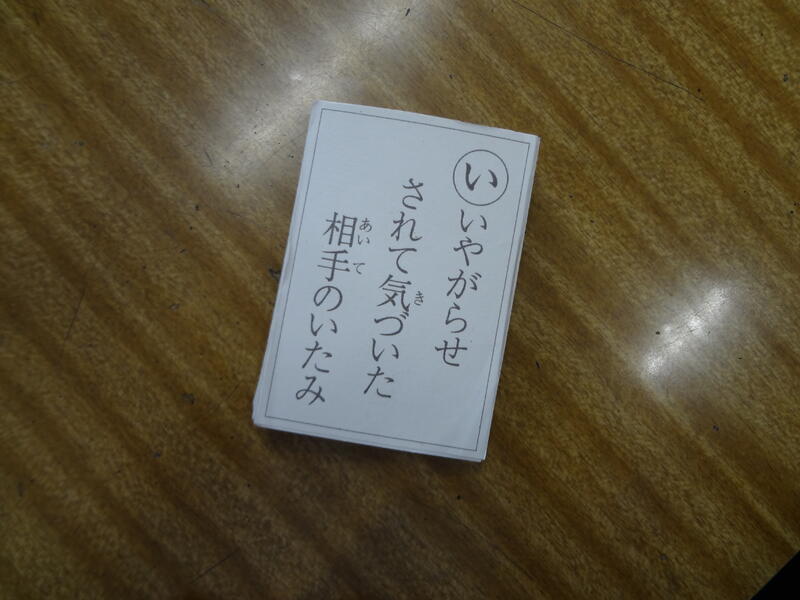 い
いやがらせ
されて気づいた
相手のいたみ